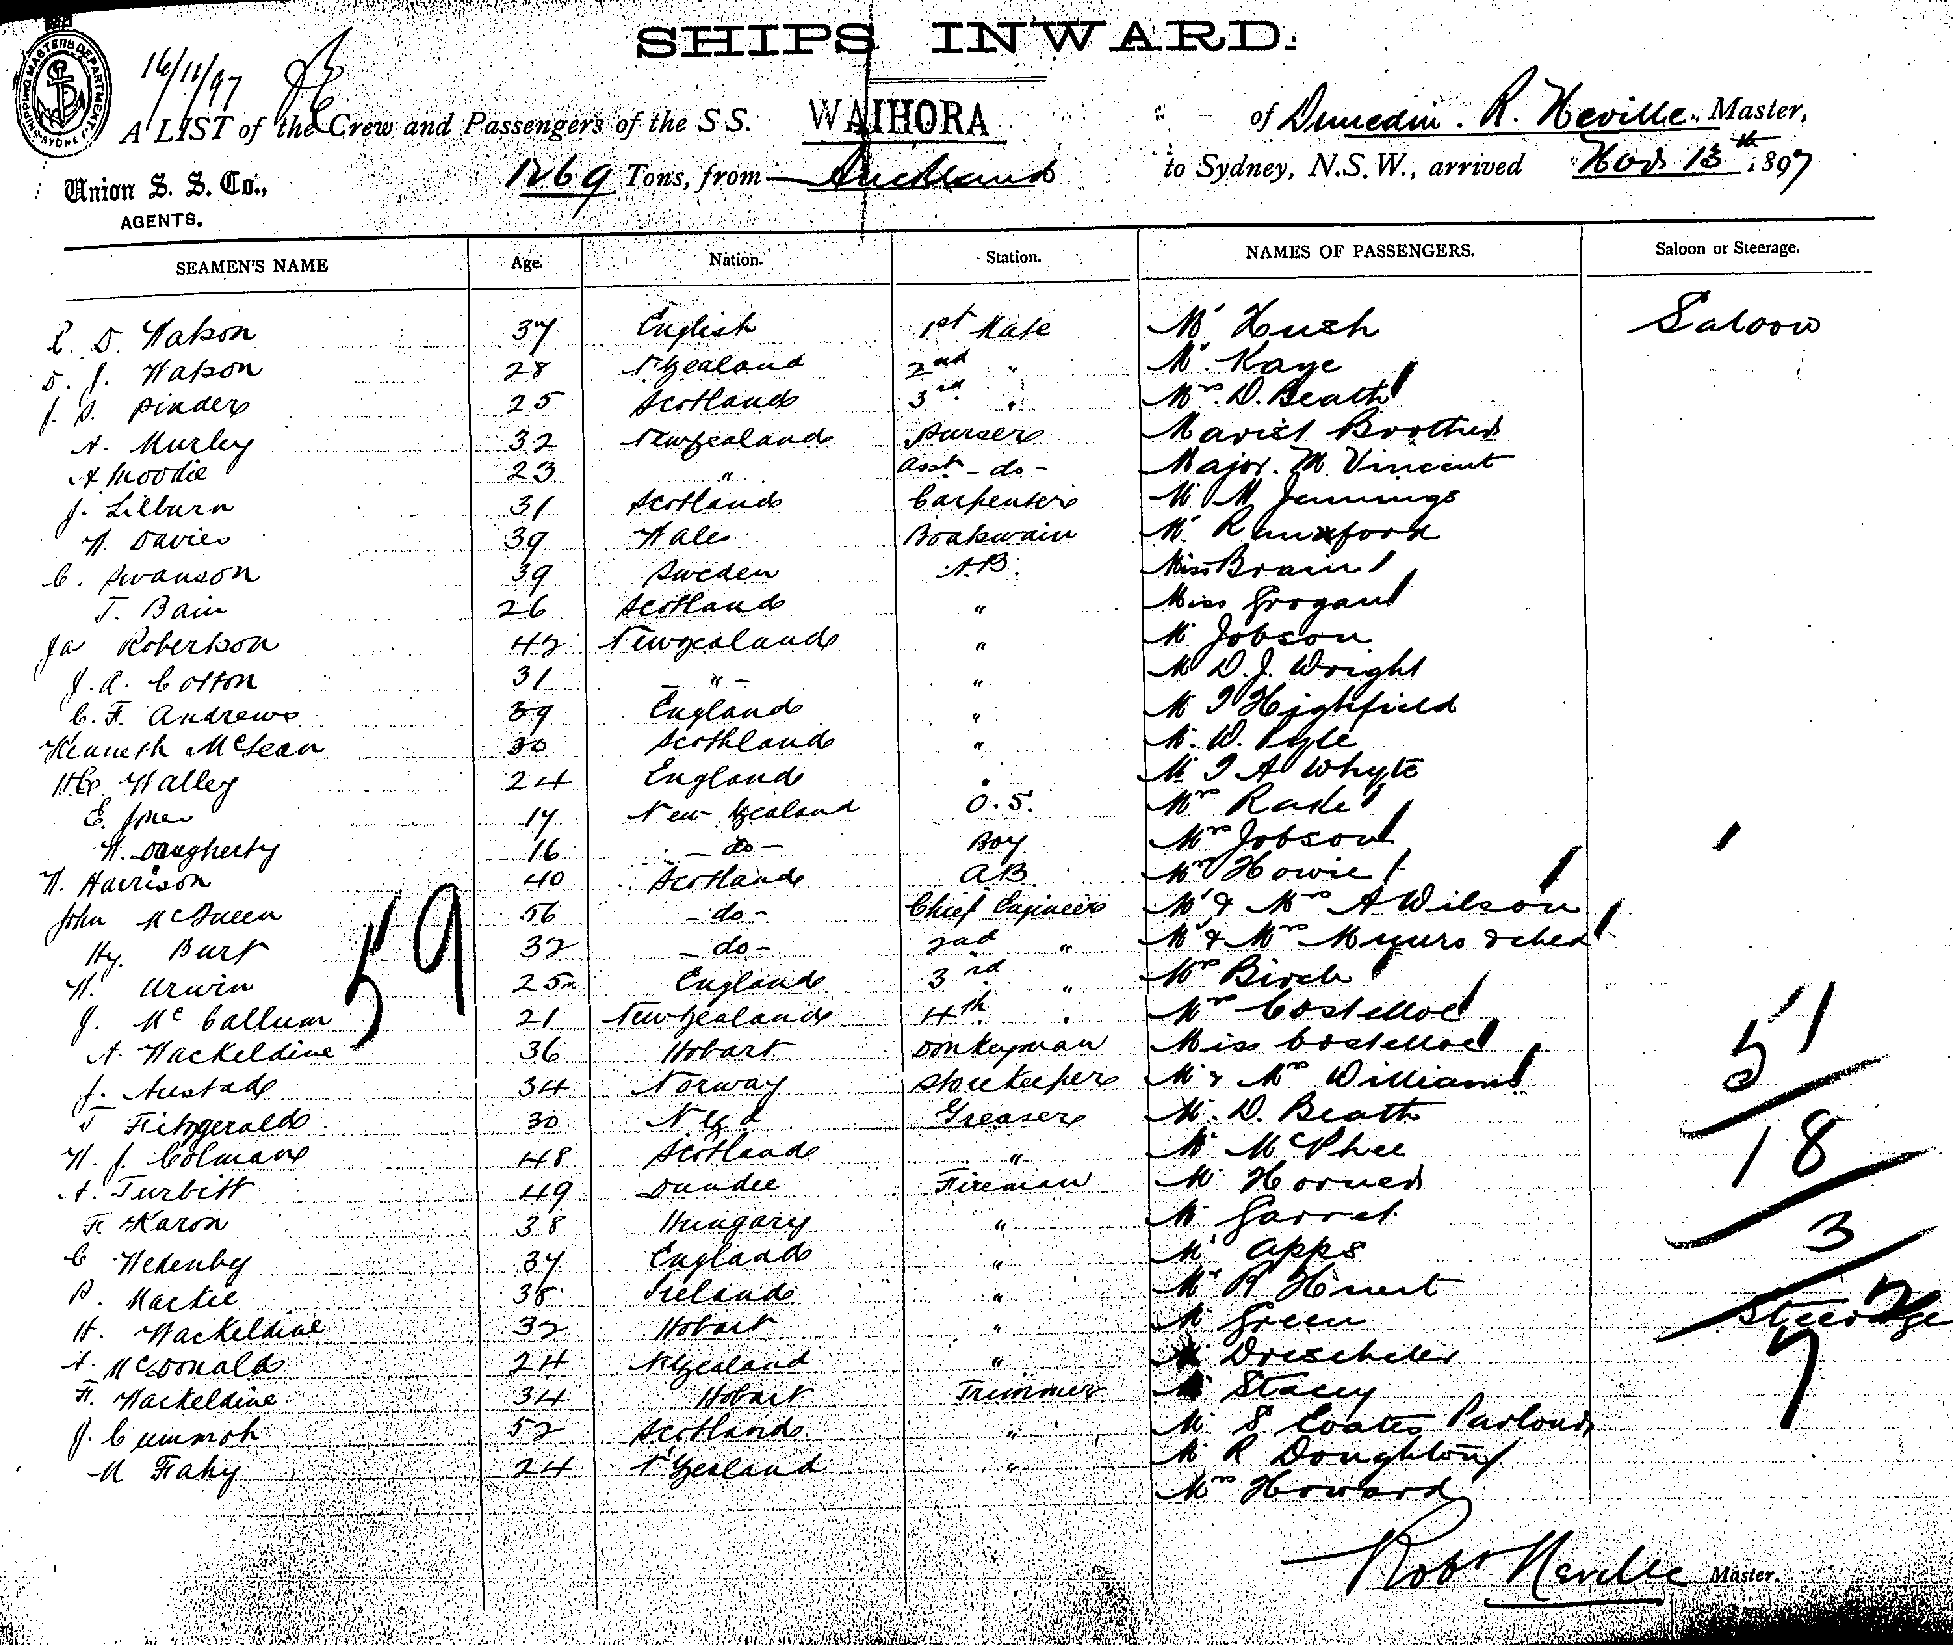 SHIPS INWARD.
16/11/97
SHIPPING MASTERS DEPARTMENT SYDNEY
A LIST of the Crew and Passengers of the S S. WAIHORA of Dunedin. R. Neville. Master,
1269 Tons, from Auckland to Sydney, N.S.W., arrived Nov. 15th 1897
Union S. S. Co.,
AGENTS.
SEAMEN'S NAME Age. Nation. Station. NAMES OF PASSENGERS. Saloon or Steerage.
R. D. Watson 37 English 1st Mate Mr Hush Saloon
D. J. Watson 28 N Zealand 2nd " Mr Kaye
J. S. Pinder 25 Scotland 3rd " Mrs. D. Beath
A. Murley 32 New Zealand Purser Marist Brother
A Moodie 23 " Asst - do - Major. M. Vincent
J. Lilburn 31 Scotland Carpenter Mr M Jennings
W. Davies 39 Wales Boatswain Mr
C. Swanson 39 Sweden A.B. Miss Brain
T. Bain 26 Scotland " Miss Grogan
Ja Robertson 42 New Zealand " Mr Jobson
J. A. Cotton 31 - " - " Mr D. J. Wright
C. F. Andrews 39 England " Mr I Highfield
Kenneth McLean 30 Scothland " Mr. W. Pyle
Walley 24 England " Mr I A Whyte
E. Jones 17 New Zealand O.S. Mrs
W. Daugherty 16 - do - Boy Mrs Jobson
W. Harrison 40 Scotland AB Mrs Howie
John McQueen 56 - do - Chief Engineer Mr & Mrs A Wilson
Hy. Burt 32 - do - 2nd " Mr & Mrs Myers & child
W. Urwin 25 England 3rd " Mrs Birch
J. McCallum 21 New Zealand 4th " Mrs Costelloe
A. Hackeldine 36 Hobart Donkeyman Miss Costelloe
J. Austad 34 Norway Storekeeper Mr & Mrs Williams
T Fitzgerald 30 N Z d Greaser Mr. D. Beath
W. J. Colman 48 Scotland " Mr McPhee
A. Turbitt 49 Dundee Fireman Mr Horner
F. Karon 38 Hungary " Mr Garret
C 37 England " Mr Apps
P. Mackie 38 Ireland " Mr R Huert
H. Hackeldine 32 Hobart " Mr Green
A. McDonald 24 N Zealand " Mr Drescheler
F. Hackeldine 34 Hobart Trimmer Mr Stacey
J. 52 Scotland " Mr S Coates
M Fahy 24 N Zealand " Mr R Doughton
Mrs Howard
59
51
18
3
Steerage
7
Robt Neville Master.